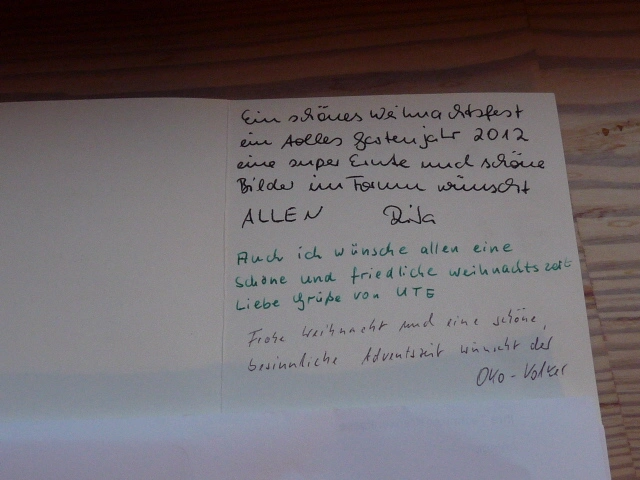 Ein schönes Weihnachtsfest
ein tolles Gartenjahr 2012
eine super Ernte und schöne
Bilder im Forum wünscht
ALLEN Rita
Auch ich wünsche allen eine
schöne und friedliche Weihnachtszeit
Liebe Grüße von UTE
Frohe Weihnacht und eine schöne,
besinnliche Adventszeit wünscht der
Öko-Volker